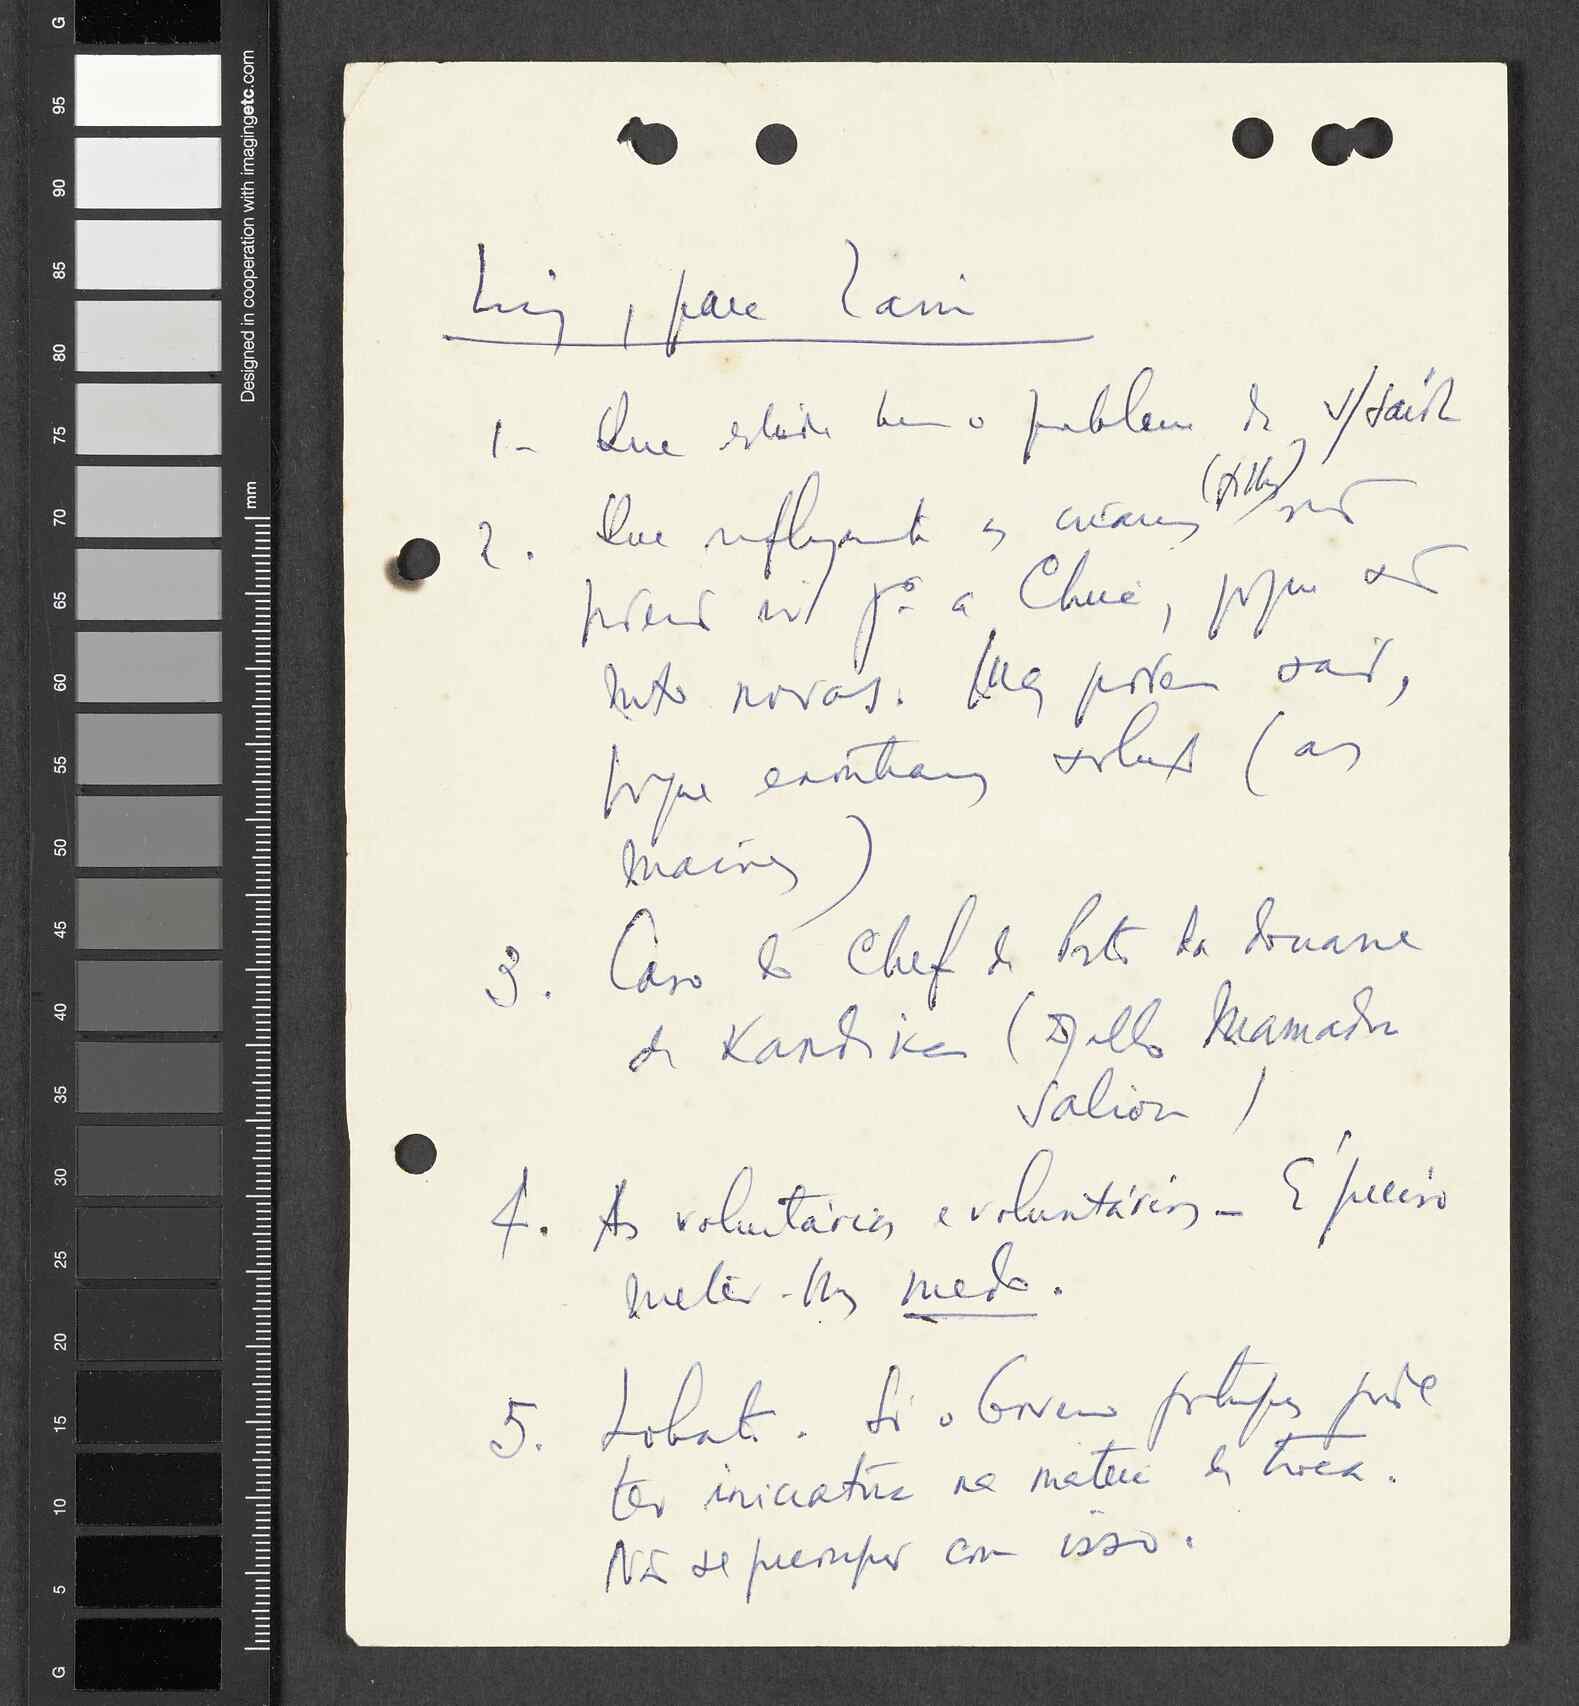 G
95
90
85
80
75
70
65
60
55
50
45
40
35
30
25
20
15
10
5
G
Designed in cooperation with imagingetc.com
mm
Luiz, para
1- Que estude bem o problema da v/saúde
2. Que infelizmente as crianças não
podem ir pª a Chine, porque são
mto novas. Mas podem sair,
porque encontramos solução (as
maiores)
3. Caso do Chef de Posto da douane
de Kandika (Djallo Mamadu
Saliou)
4. As voluntárias e voluntários - É preciso
meter-lhes medo.
5. Lobato. Só o Governo português pode
ter iniciativa na matéria da troca.
Não se preocupar com isso.